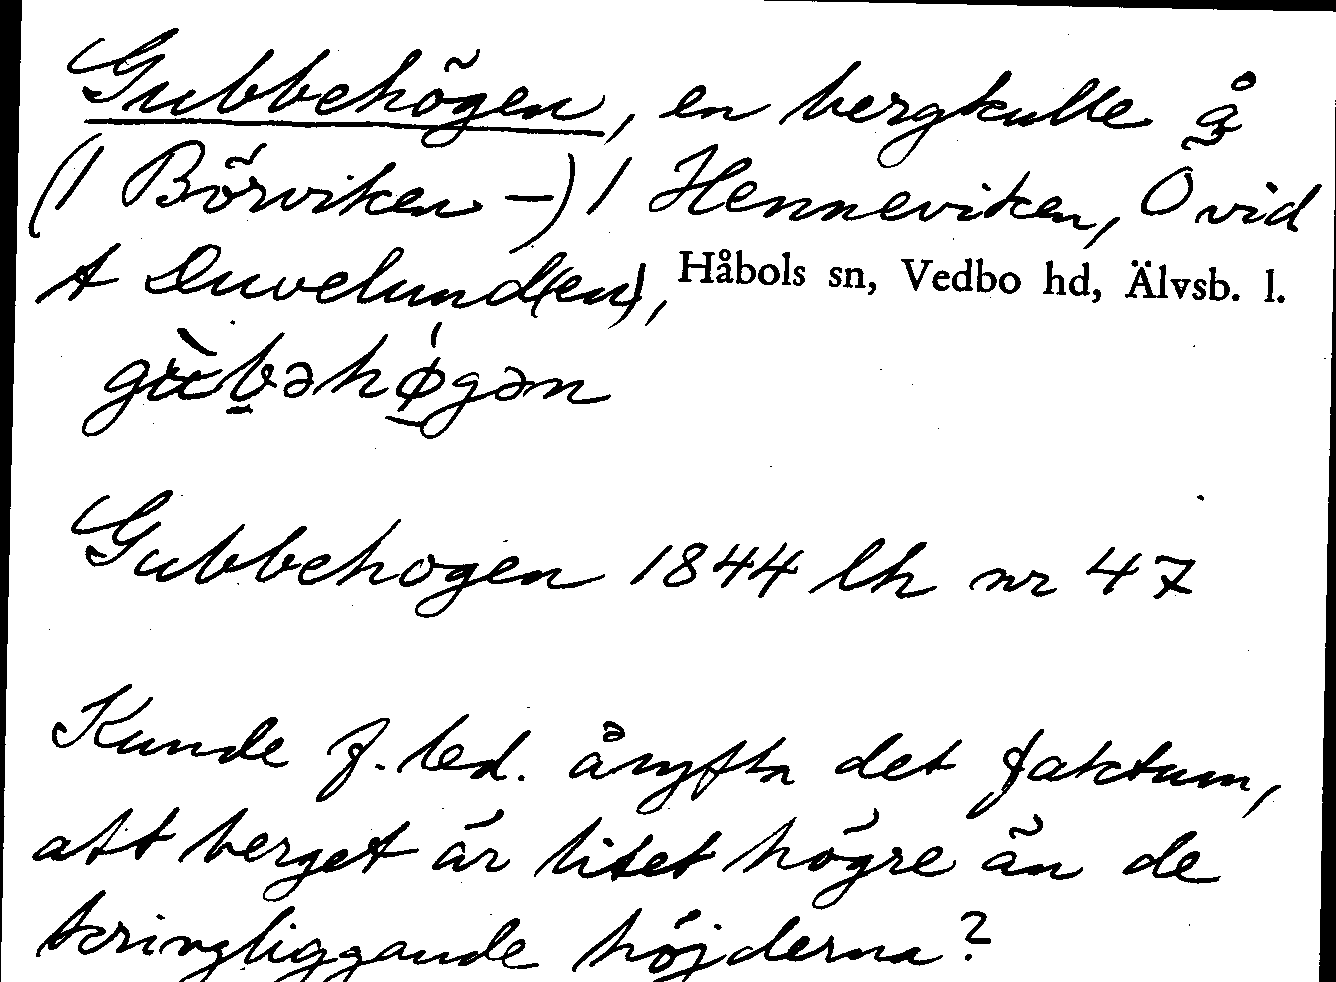 Gubbehögen, en bergkulle å
(1 Börviken –) 1 Henneviken, O vid
t Duvelund(en), Håbols sn, Vedbo hd, Älvsb. l.
gùbəhǿgən
Gubbehogen 1844 lh nr 47
Kunde f. led. åsyfta det faktum,
att berget är litet högre än de
kringliggande höjderna?